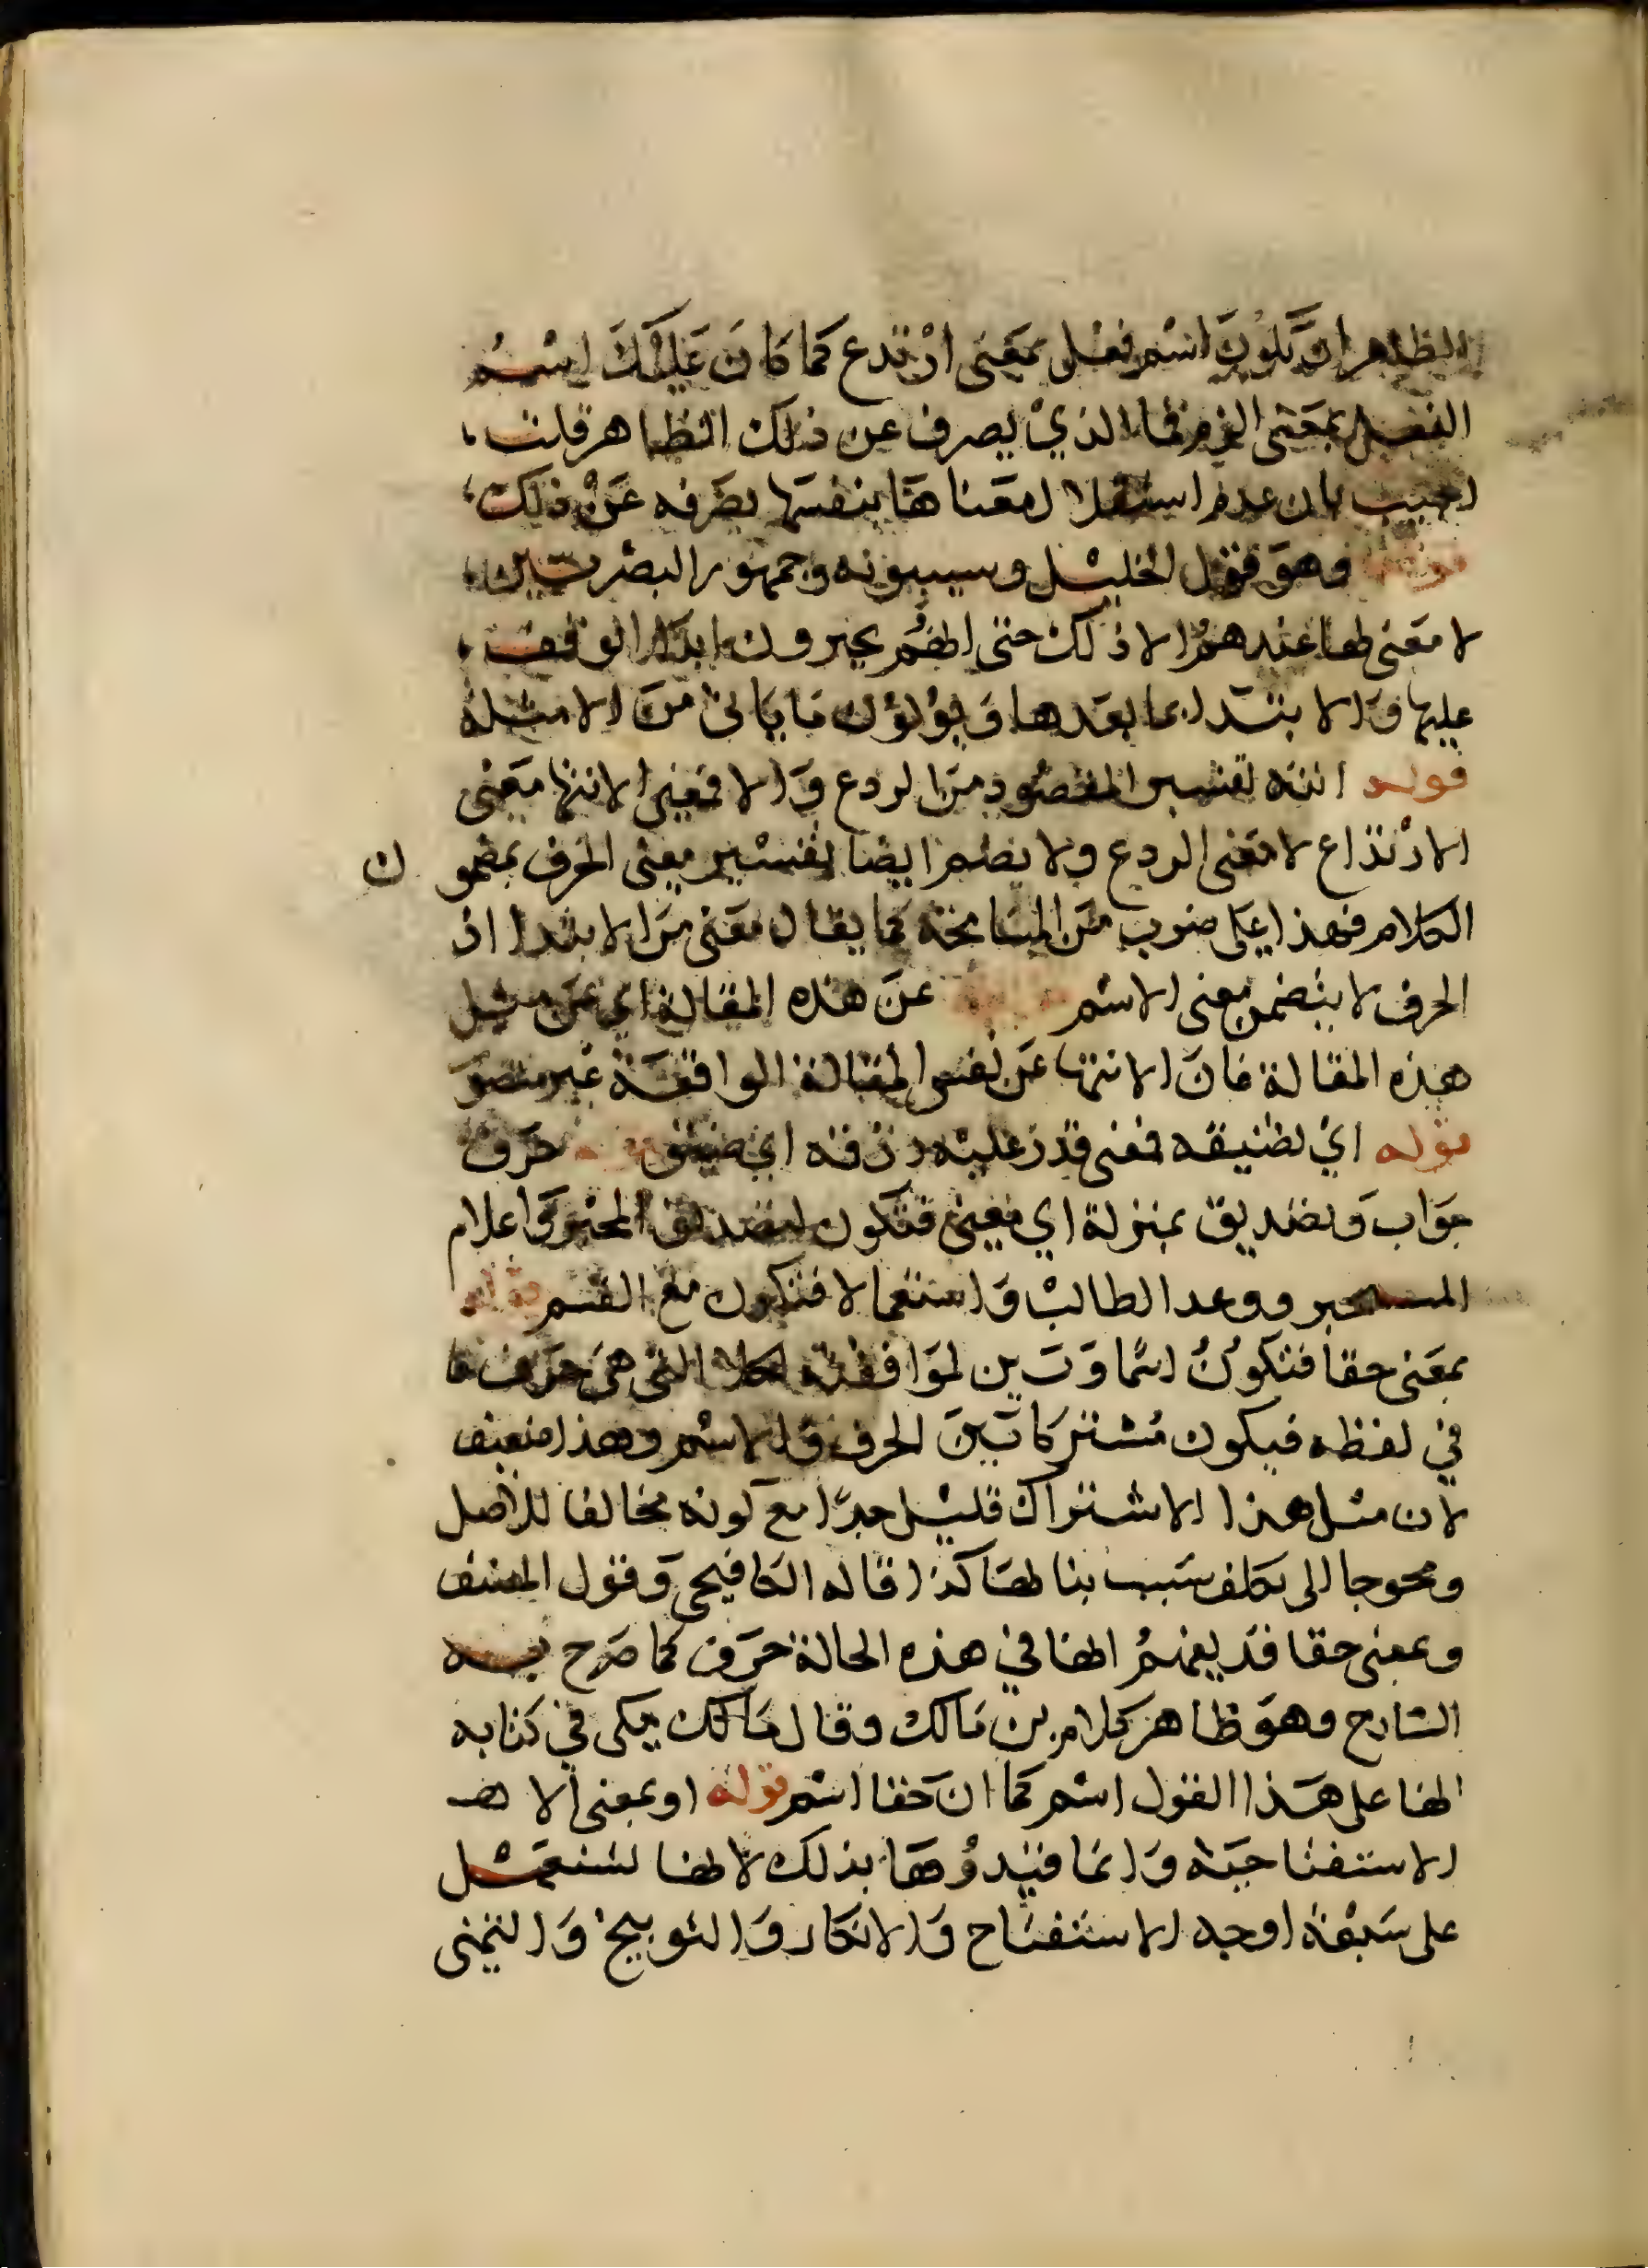 الظاهر ان تكون اسم فعل بمعنى ارتدع كما كان عليك اسم
الفعل بمعنى الزم فما الذي يصرف عن ذلك الظاهر قلت
اجيب بان عدم استقلال معناها بنفسها يصرفه عن ذلك
قوله وهو قول الخليل وسيبويه وجمهور البصريين
لا معنى لها عندهم الا ذلك حتى انهم يجيزون ابدا الوقف
عليها والابتدا بما بعدها ويؤولون ما ياتي من الامثلة
قوله انته تفسير المقصود من الردع والا فمعنى الانتها معنى
الارتداع لا معنى الردع ولا يضر ايضا تفسير معنى الحرف بمضمون
الكلام فهذا على ضرب من المسامحة كما يقال معنى من الابتدا اذ
الحرف لا يتضمن معنى الاسم عن هذه المقالة اي عن مثل
هذه المقالة فان الانتها عن نفس المقالة الواقعة غير متصور
قوله اي نضيقه فمعنى قدر عليه رزقه اي ضيق قوله حرف
جواب وتصديق بمنزلة اي معنى فتكون لتصديق المخبر واعلام
المستخبر ووعد الطالب واستعمالا فتكون مع القسم قوله
بمعنى حقا فتكون اسما وتبين لموافقته لكلا التي هي حرف
في لفظه فيكون مشتركا بين الحرف والاسم وهذا ضعيف
لان مثل هذا الاشتراك قليل جدا مع كونه مخالفا للاصل
ومحوجا الى تكلف سبب بنائها كذا قاله الكافيجي وقول المصنف
وبمعنى حقا قد يفهم انها في هذه الحالة حرف كما صرح به
الشارح وهو ظاهر كلام بن مالك وقال مالك مكي في كتابه
انها على هذا القول اسم كما ان حقا اسم قوله او بمعنى الا
الاستفتاحية وانما قيدوها بذلك لانها تستعمل
على سبعة اوجه الاستفتاح والانكار والتوبيخ والتمني